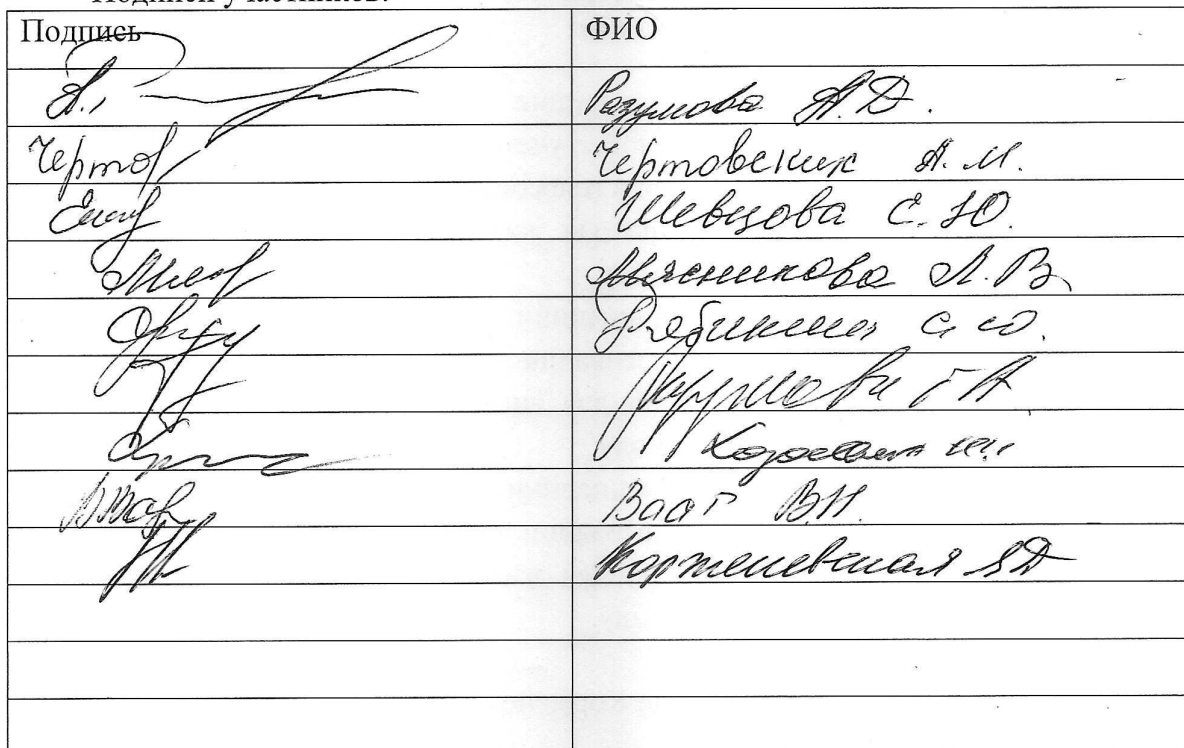 Подписи участников:
Подпись ФИО
Разумова А.Д.
Чертов Чертовских А.М.
Шевцова Е.Ю.
Мясникова Л.В.
Рябикина С.Ю.
Г А

Ваат В.Н.
Корженевская Я Д